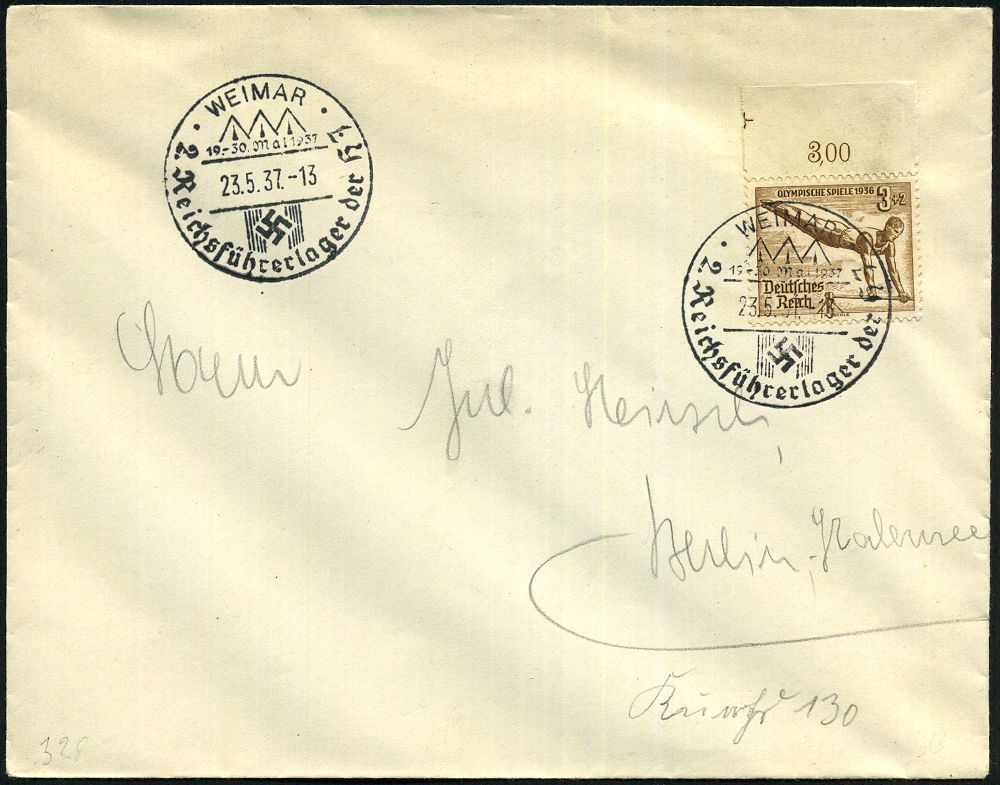 WEIMAR
19.-30. Mai 1937
23.5.37.-13
2. Reichsführerlager der HJ
3,00
OLYMPISCHE SPIELE 1936 3+2
Deutsches
Reich
WEIMAR
19.-30. Mai 1937
23.5.37.-13
2. Reichsführerlager der HJ
Herrn
Jul.
Berlin-Halensee
130
328